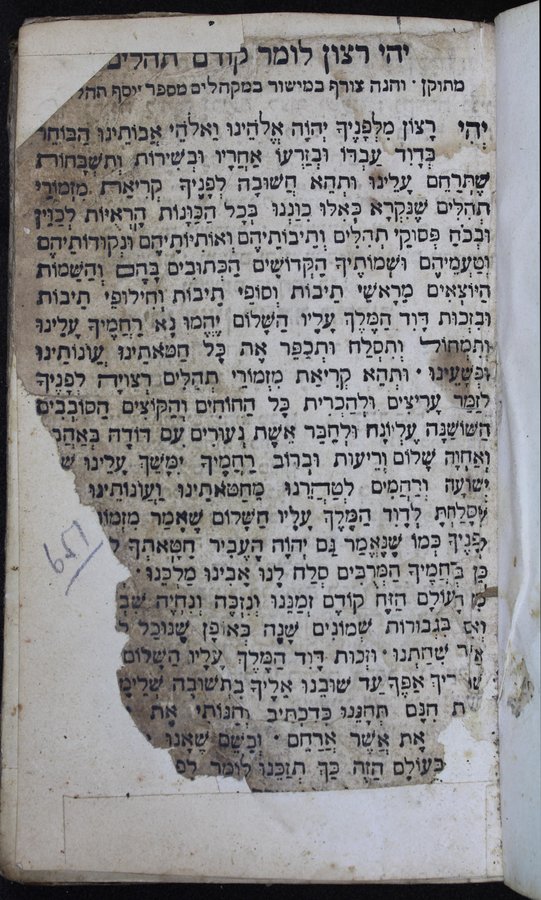 יהי רצון לומר קודם תהלים
מתוקן · והנה צורף במישור במקהלים מספר יוסף תהל
יְהִי רָצוֹן מִלְּפָנֶיךָ יְהֹוָה אֱלֹהֵינוּ וֵאלֹהֵי אֲבוֹתֵינוּ הַבּוֹחֵר
בְּדָוִד עַבְדּוֹ וּבְזַרְעוֹ אַחֲרָיו וּבְשִׁירוֹת וְתִשְׁבָּחוֹת
שֶׁתְּרַחֵם עָלֵינוּ וּתְהֵא חֲשׁוּבָה לְפָנֶיךָ קְרִיאַת מִזְמוֹרֵי
תְהִלִּים שֶׁנִּקְרָא כְּאִלּוּ כִוַּנּוּ בְּכָל הַכַּוָּנוֹת הָרְאֻיּוֹת לְכַוֵּין
וּבְכֹחַ פְּסוּקֵי תְהִלִּים וְתֵיבוֹתֵיהֶם וְאוֹתִיּוֹתֵיהֶם וּנְקוּדוֹתֵיהֶם
וְטַעֲמֵיהֶם וּשְׁמוֹתֶיךָ הַקְּדוֹשִׁים הַכְּתוּבִים בָּהֶם וְהַשֵּׁמוֹת
הַיּוֹצְאִים מֵרָאשֵׁי תֵיבוֹת וְסוֹפֵי תֵיבוֹת וְחִילּוּפֵי תֵיבוֹת
וּבִזְכוּת דָּוִד הַמֶּלֶךְ עָלָיו הַשָּׁלוֹם יֶהֱמוּ נָא רַחֲמֶיךָ עָלֵינוּ
וְתִמְחוֹל וְתִסְלַח וּתְכַפֵּר אֶת כָּל חַטֹּאתֵינוּ עֲוֹנוֹתֵינוּ
וּפְשָׁעֵינוּ · וּתְהֵא קְרִיאַת מִזְמוֹרֵי תְהִלִּים רְצוּיָה לְפָנֶיךָ
לְזַמֵּר עָרִיצִים וּלְהַכְרִית כָּל הַחוֹחִים וְהַקּוֹצִים הַסּוֹבְבִים
הַשּׁוֹשַׁנָּה עֶלְיוֹנָה וּלְחַבֵּר אֵשֶׁת נְעוּרִים עִם דּוֹדָהּ בְּאַהֲבָ
וְאַחְוָה שָׁלוֹם וְרֵיעוּת וּבְרוֹב רַחֲמֶיךָ יִמָּשֵׁךְ עָלֵינוּ שׁ
יְשׁוּעָה וְרַחֲמִים לְטַהֲרֵנוּ מֵחַטֹּאתֵינוּ וַעֲוֹנוֹתֵינוּ
סָלַחְתָּ לְדָוִד הַמֶּלֶךְ עָלָיו הַשָּׁלוֹם שֶׁאָמַר מִזְמוֹ
לְפָנֶיךָ כְּמוֹ שֶׁנֶּאֱמַר גַּם יְהֹוָה הֶעֱבִיר חַטָּאתְךָ ל
כֵּן בְּרַחֲמֶיךָ הַמְרֻבִּים סְלַח לָנוּ אָבִינוּ מַלְכֵּנוּ
מִן הָעוֹלָם הַזֶּה קוֹדֶם זְמַנֵּנוּ וְנִזְכֶּה וְנִחְיֶה שִׁבְ
וְאִם בִּגְבוּרוֹת שְׁמוֹנִים שָׁנָה בְּאוֹפֶן שֶׁנּוּכַל לְ
שִׁחַתְנוּ · וּזְכוּת דָּוִד הַמֶּלֶךְ עָלָיו הַשָּׁלוֹם
רִיךְ אַפֶּךָ עַד שׁוּבֵנוּ אֵלֶיךָ בִּתְשׁוּבָה שְׁלֵימָ
ת חִנָּם תְּחָנֵּנוּ כְּדִכְתִיב וְחַנּוֹתִי אֶת
אֶת אֲשֶׁר אֲרַחֵם · וּכְשֵׁם שֶׁאָנוּ
בָּעוֹלָם הַזֶּה כַּךְ תְּזַכֵּנוּ לוֹמַר לְפ